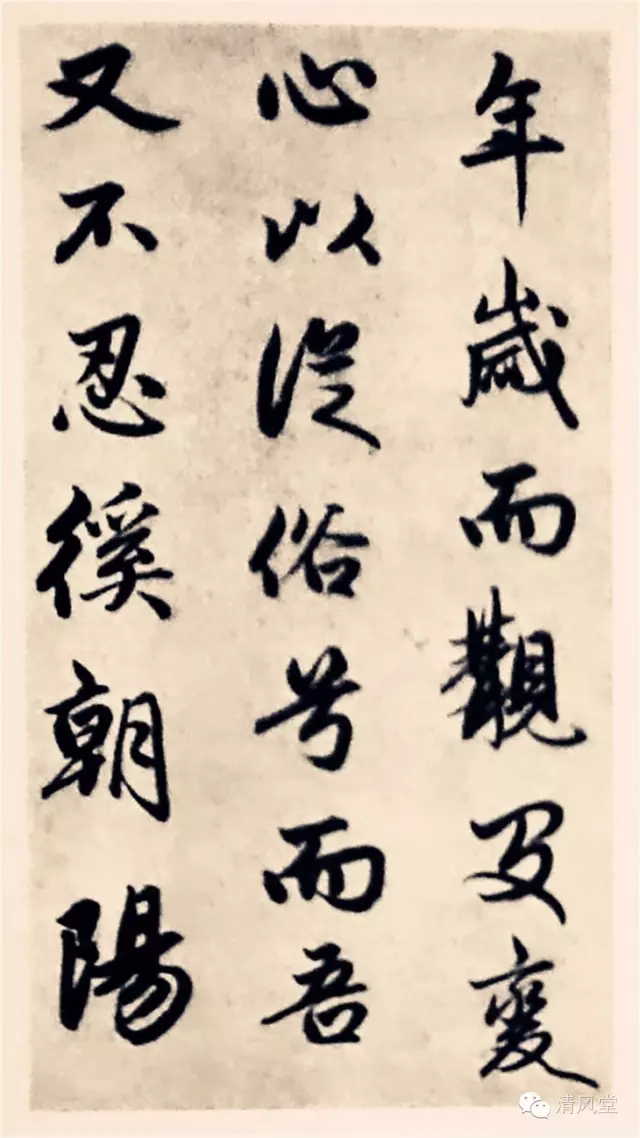 年歲而觀變
心以從俗兮而吾
又不忍徯朝陽
清风堂